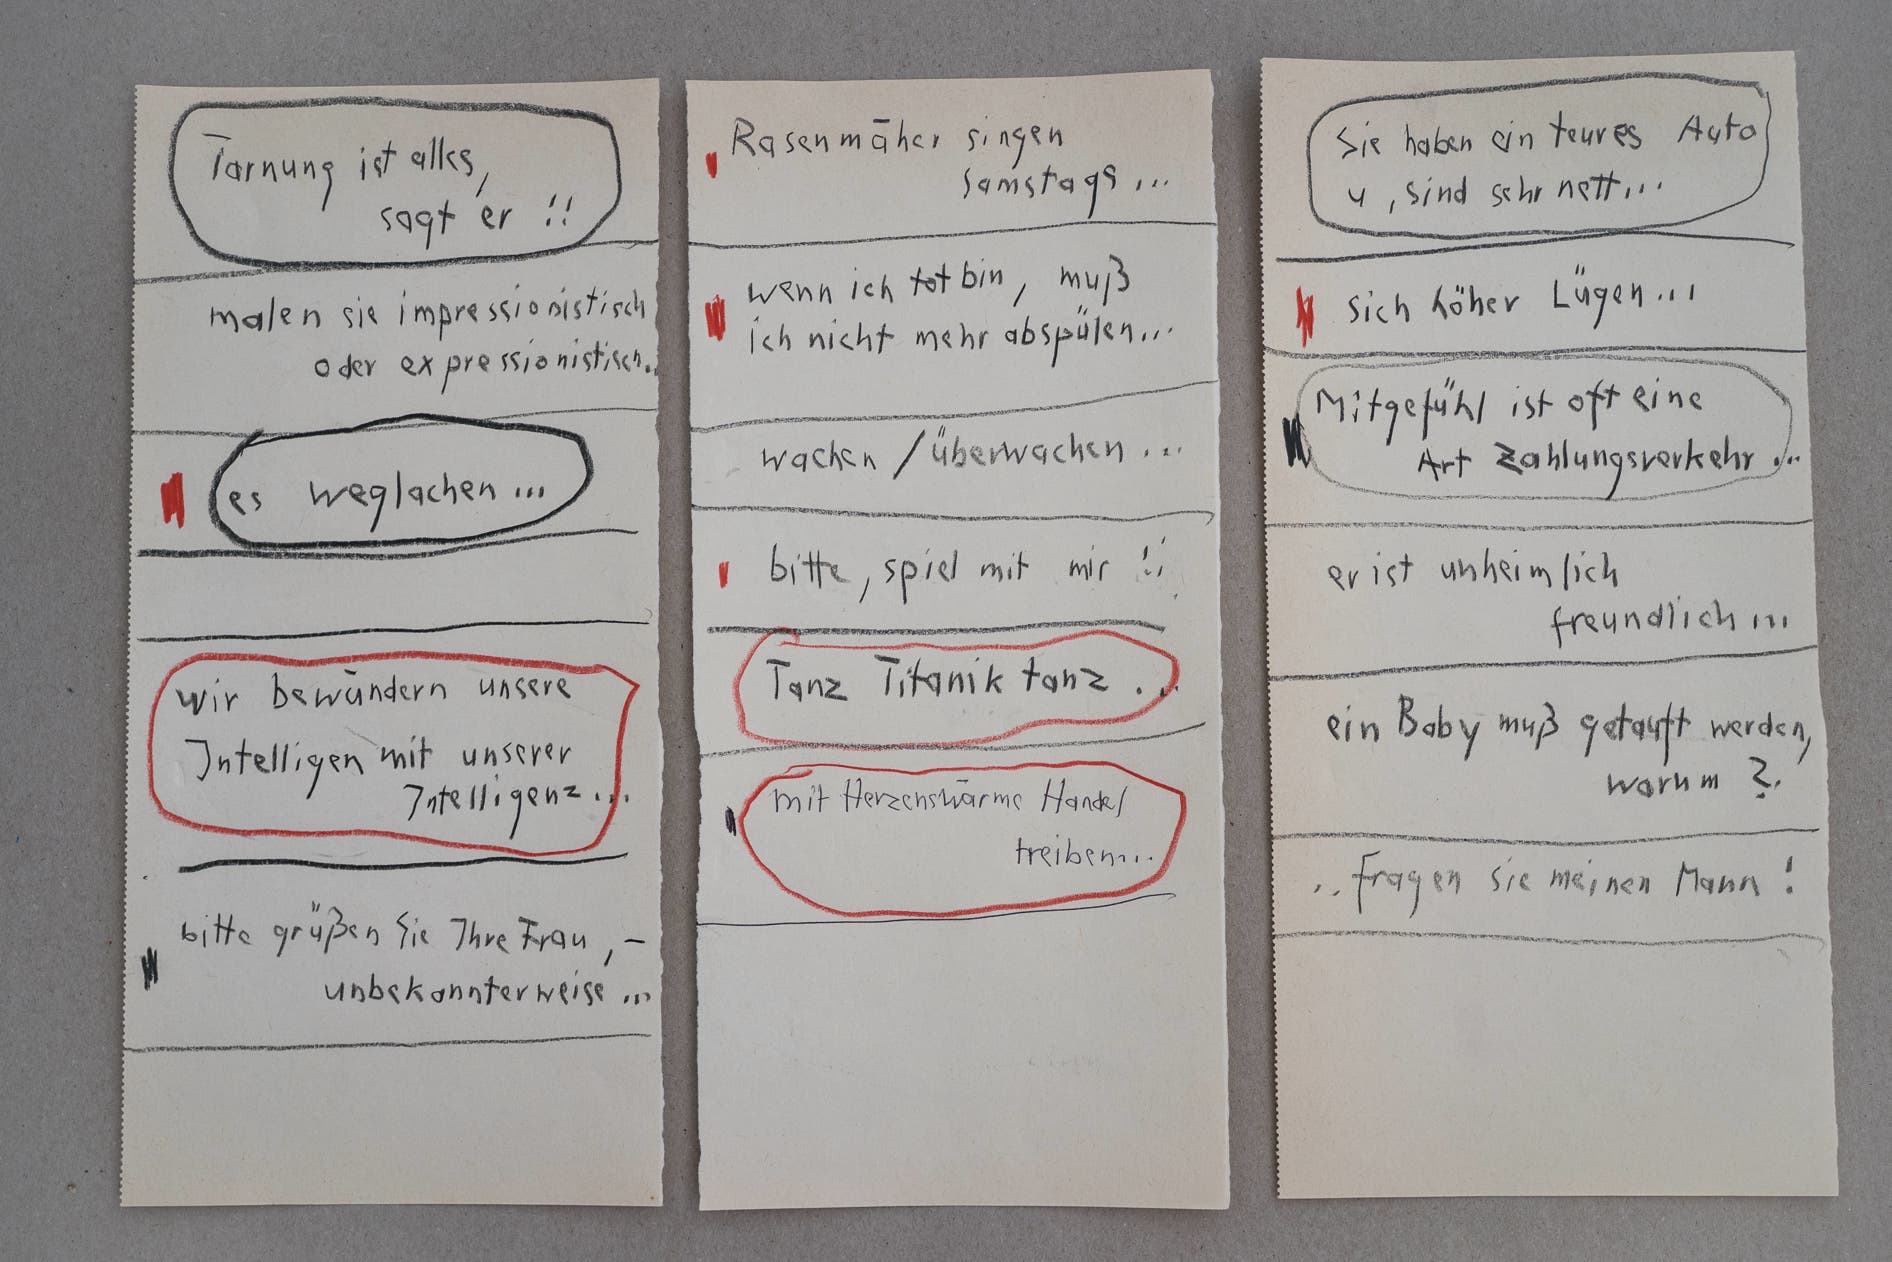 Tarnung ist alles,
sagt er !!
malen sie impressionistisch
oder expressionistisch..
es weglachen...
wir bewundern unsere
Intelligen mit unserer
Intelligenz...
bitte grüßen Sie Ihre Frau, –
unbekannterweise...
Rasenmäher singen
samstags...
wenn ich tot bin, muß
ich nicht mehr abspülen...
wachen / überwachen...
bitte, spiel mit mir !!
Tanz Titanik tanz...
mit Herzenswärme Handel
treiben...
Sie haben ein teures Auto
u, sind sehr nett...
sich höher Lügen...
Mitgefühl ist oft eine
Art Zahlungsverkehr...
er ist unheimlich
freundlich...
ein Baby muß getauft werden,
warum ?.
..fragen Sie meinen Mann !